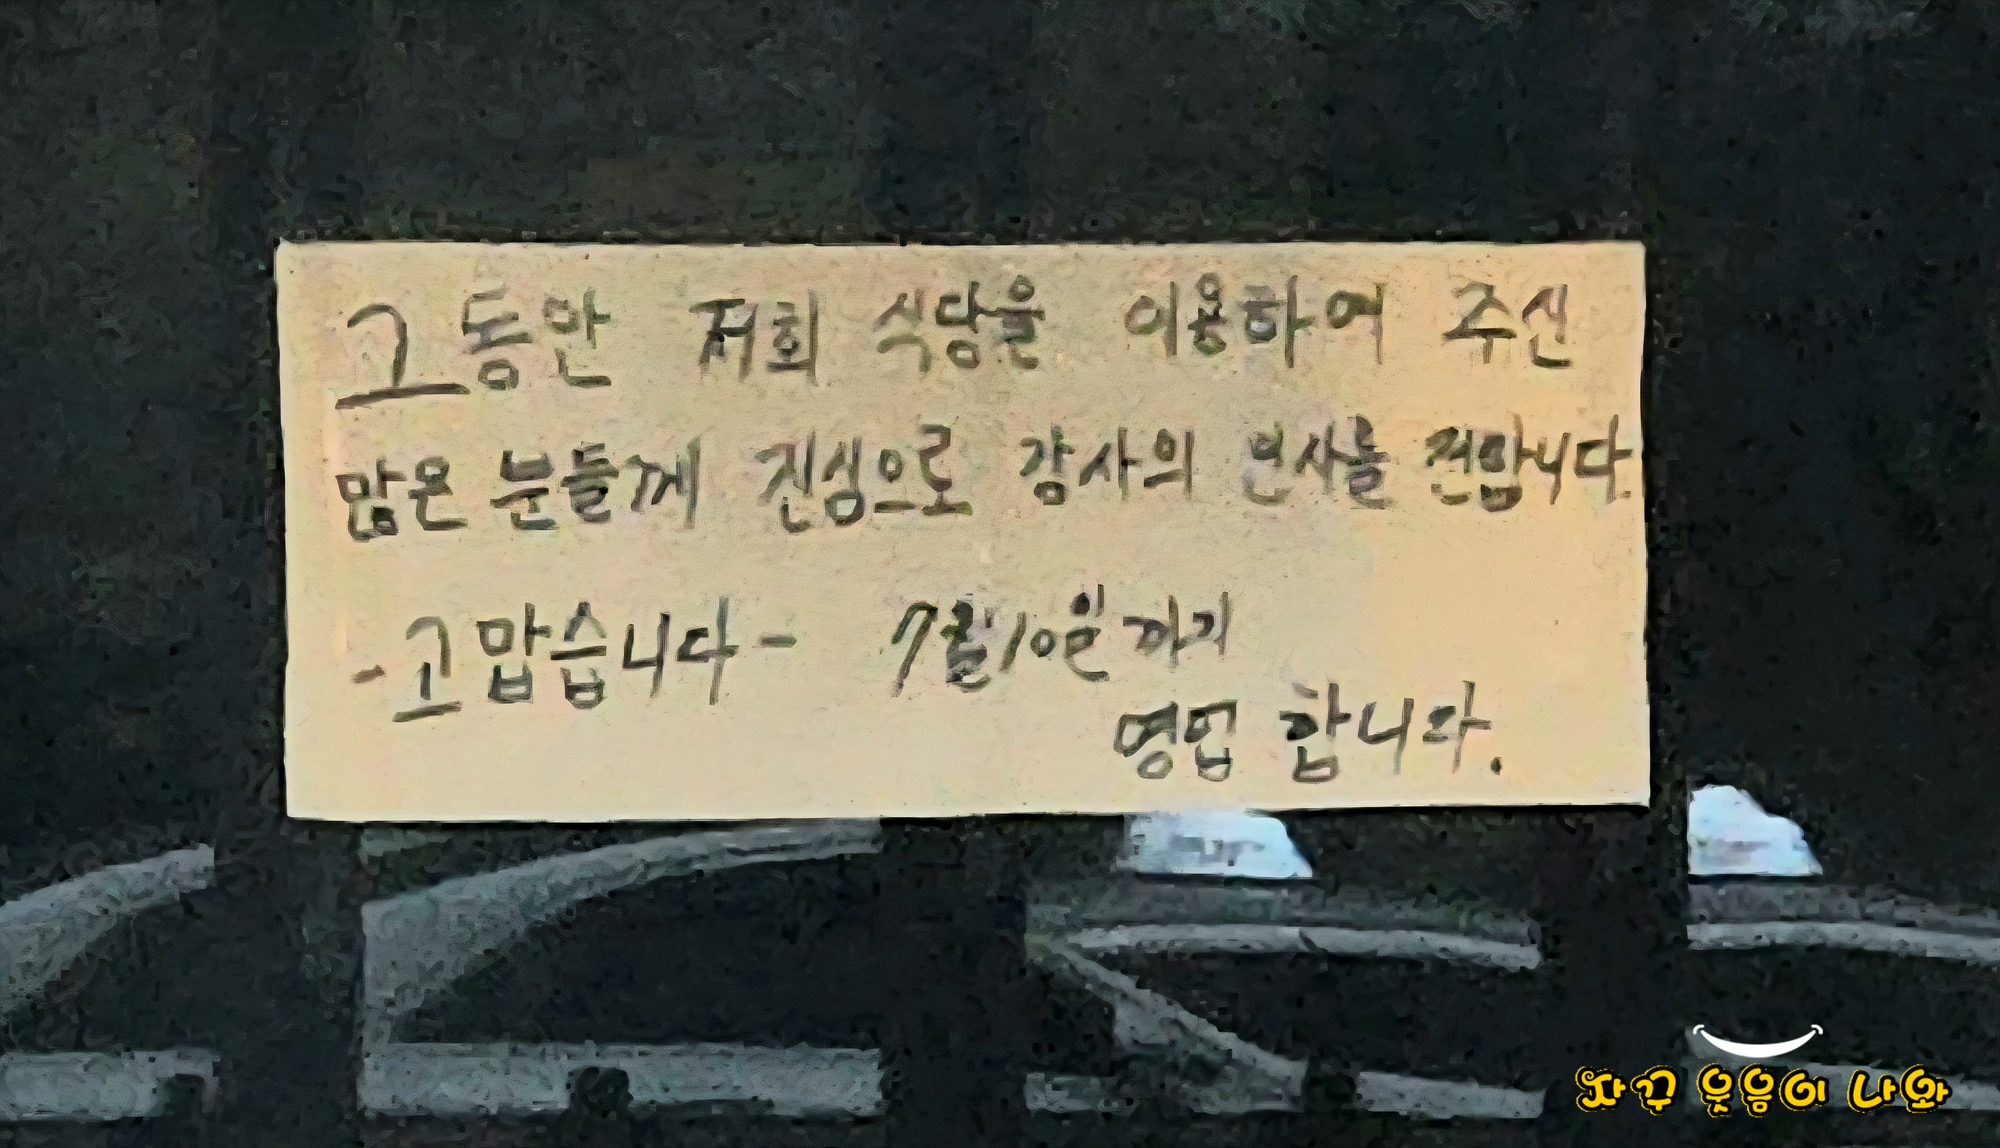 그동안 저희 식당을 이용하여 주신
많은 분들께 진심으로 감사의 인사를 전합니다.
-고맙습니다- 7월10일까지
영업 합니다.
자꾸 웃음이 나와